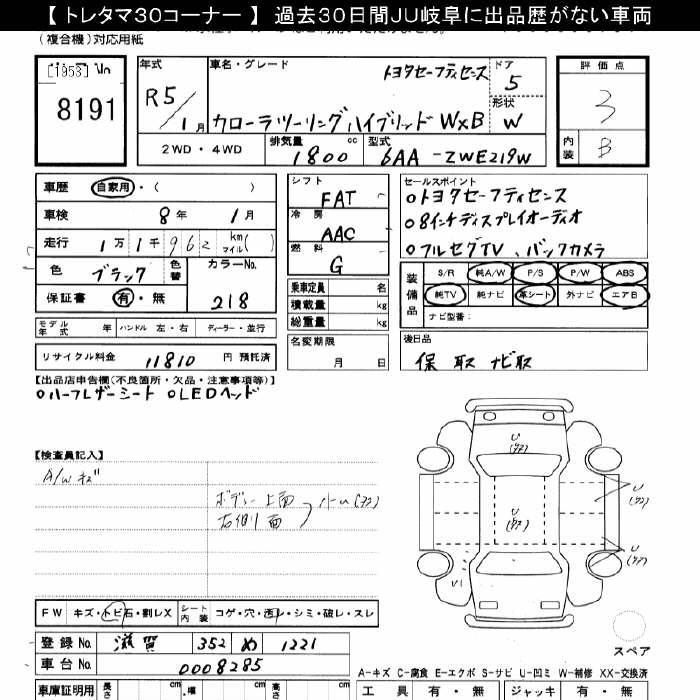 【 トレタマ30コーナー 】 過去30日間JU岐阜に出品歴がない車両
(複合機)対応用紙
[1953] No
8191
年式
R5/1月
車名・グレード
トヨタセーフティセンス
カローラツーリングハイブリッド W×B
ドア
5
形状
W
評価点
3
内装
B
2WD ・ 4WD
排気量
1800 cc
型式
6AA-ZWE219W
車歴
自家用・( )
車検
8年 1月
走行
1万1千962 km マイル( )
色
ブラック
色替
カラーNo.
218
保証書
有・無
モデル年式 年
ハンドル 左・右
ディーラー・並行
リサイクル料金
11810 円 預託済
シフト
FAT
冷房
AAC
燃料
G
乗車定員 名
積載量 kg
総重量 kg
名変期限
月 日
セールスポイント
○トヨタセーフティセンス
○8インチディスプレイオーディオ
○フルセグTV、バックカメラ
装備品
S/R 純A/W P/S P/W ABS
純TV 純ナビ 革シート 外ナビ エアB
ナビ型番:
後日品
保 取 ナビ取
【出品店申告欄(不良箇所・欠品・注意事項等)】
○ハーフレザーシート ○LEDヘッド
【検査員記入】
A/W キズ
ボディー上面
右側面
U
U
U
U
FW キズ・トビ石・割レX
シート内装 コゲ・穴・汚レ・シミ・破レ・スレ
登録 No.
滋賀 352 め 1221
車台 No.
0008285
スペア
A-キズ C-腐食 E-エクボ S-サビ U-凹ミ W-補修 XX-交換済
車庫証明用
長さ cm
・幅 cm
高さ cm
工具 有・無
ジャッキ 有・無